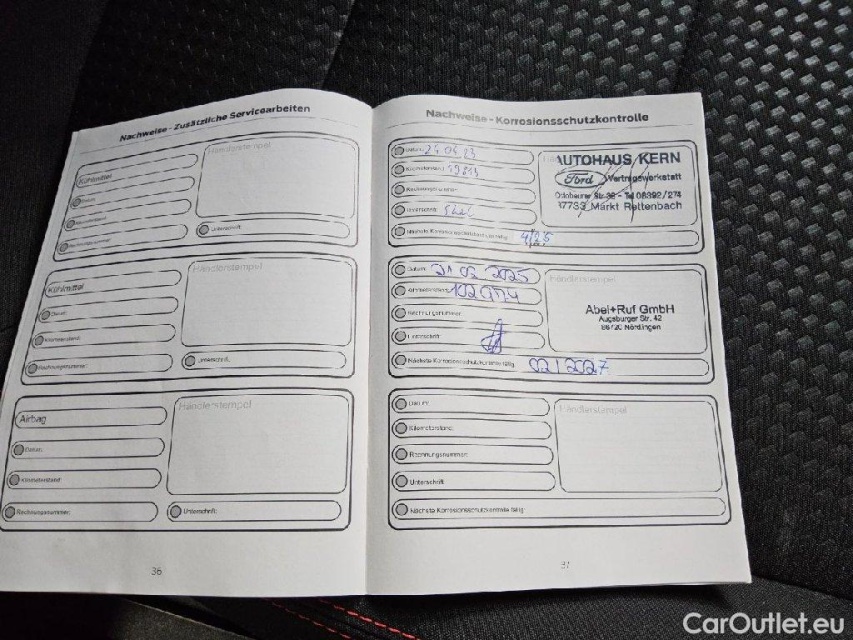 Nachweise - Zusätzliche Servicearbeiten
Kühlmittel
Händlerstempel
Datum:
Kilometerstand:
Rechnungsnummer:
Unterschrift:
Kühlmittel
Händlerstempel
Datum:
Kilometerstand:
Rechnungsnummer:
Unterschrift:
Airbag
Händlerstempel
Datum:
Kilometerstand:
Rechnungsnummer:
Unterschrift:
36
Nachweise - Korrosionsschutzkontrolle
Datum: 24.04.23
Kilometerstand:
Rechnungsnummer:
Unterschrift:
AUTOHAUS KERN
Ford Vertragswerkstatt
08392/274
87733 Markt Rettenbach
Nächste Korrosionsschutzkontrolle fällig: 4/25
Datum: 21 02 2025
Kilometerstand:
Rechnungsnummer:
Unterschrift:
Händlerstempel
Abel+Ruf GmbH
Augsburger Str. 42
86720 Nördlingen
Nächste Korrosionsschutzkontrolle fällig: 02/2027
Datum:
Kilometerstand:
Rechnungsnummer:
Unterschrift:
Händlerstempel
Nächste Korrosionsschutzkontrolle fällig:
37
CarOutlet.eu